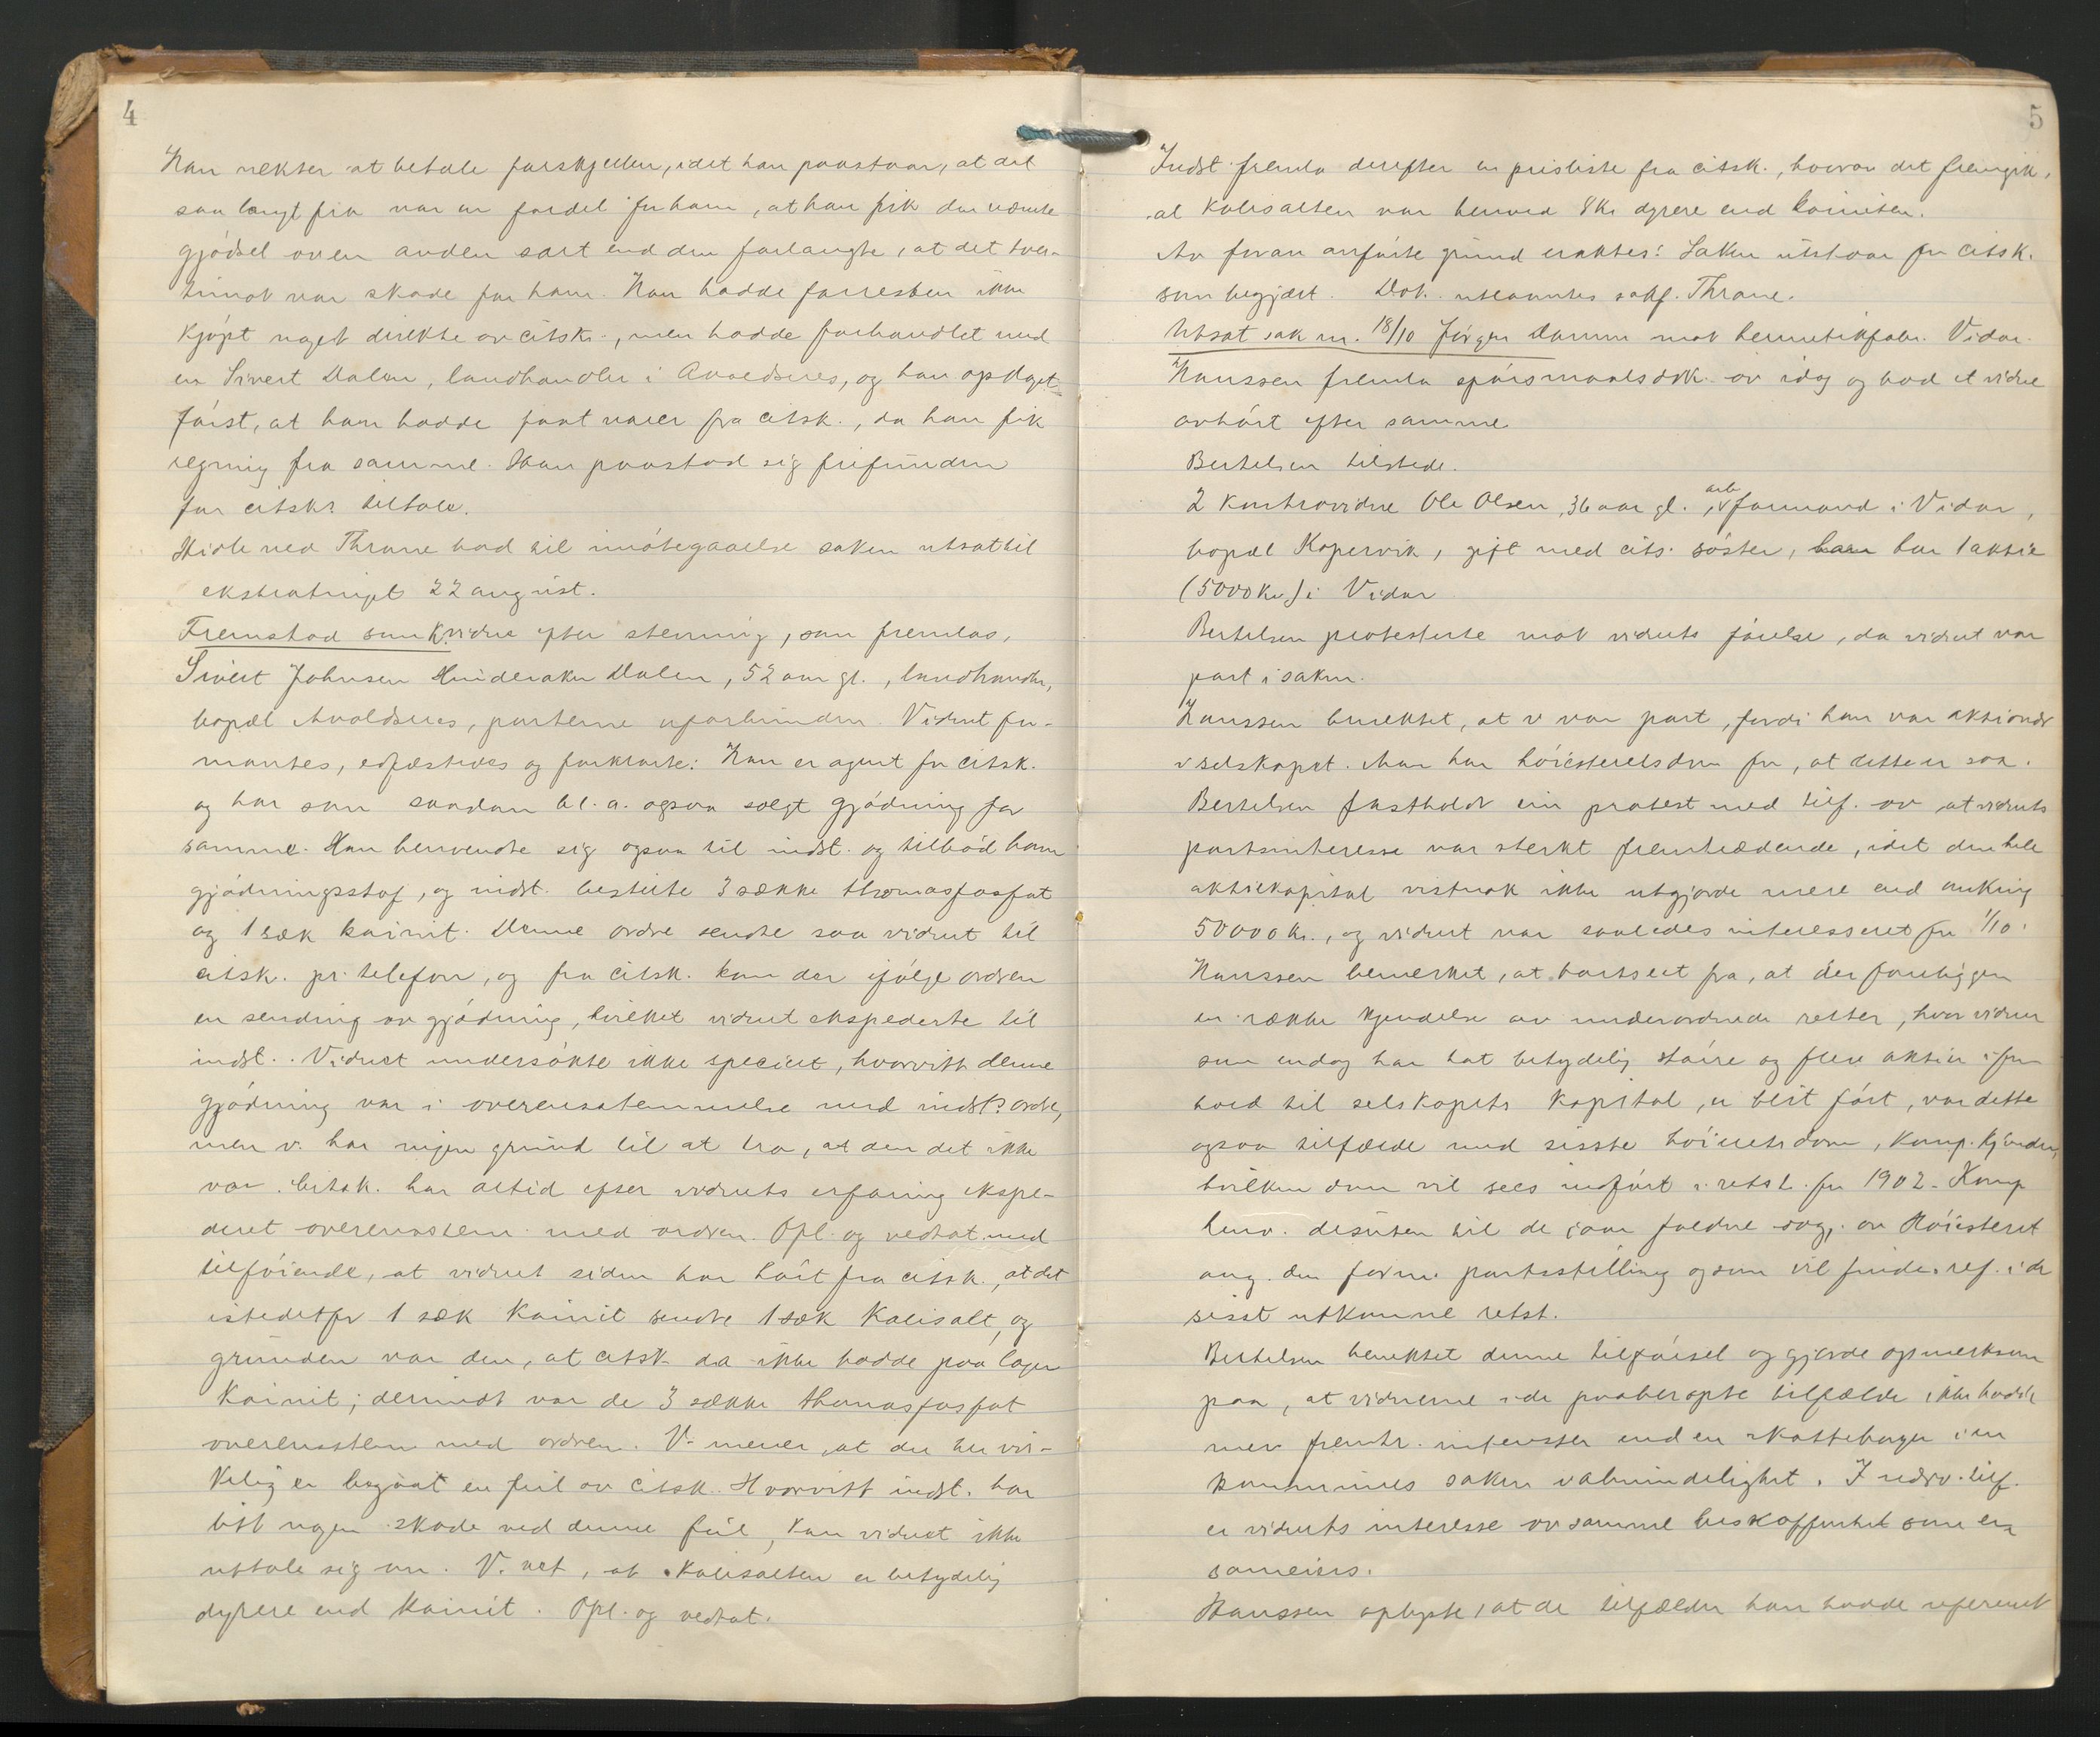 4
Han nekter at betale forskjellen, idet han paastaar, at det
saa langt fra var en fordel for ham, at han fik den nævnte
gjödsel av en anden sort end den forlangte, at det tver-
timot var skade for ham. Han hadde forresten ikke
kjöpt noget direkte av citsk., men hadde forhandlet med
en Sivert Dalen, landhandler i Avaldsnes, og han opdaget
först, at han hadde faat varer fra citsk., da han fik
regning fra samme. Han paastod sig frifunden
for citsks tiltale.
ved Thrane bad til imötegaaelse saken utsat til
ekstratinget 22 august.
Fremstod som k.vidne efter stevning, som fremlas,
Sivert Johnsen Dalen, 52 aar gl., landhandler,
bopæl Avaldsnes, parterne uforbunden. Vidnet for-
mantes, edfæstedes og forklarte: Han er agent for citsk.
og har som saadan bl. a. ogsaa solgt gjödning for
samme. Han henvendte sig ogsaa til indst. og tilböd ham
gjödningsstof, og indst. bestilte 3 sække thomasfosfat
og 1 sæk kainit. Denne ordre sendte saa vidnet til
citsk. pr. telefon, og fra citsk. kom der ifölge ordren
en sending av gjödning, hvilket vidnet ekspederte til
indst. Vidnet undersökte ikke specielt, hvorvitt denne
gjödning var i overensstemmelse med indsts ordre,
men v. har ingen grund til at tro, at den det ikke
var. Citsk. har altid efter vidnets erfaring ekspe-
deret overensstem. med ordren. Opl. og vedtat med
tilföiende, at vidnet siden har hört fra citsk., at det
istedetfor 1 sæk Kainit sendte 1 sæk Kalisalt, og
grunden var den, at citsk. da ikke hadde paa lager
Kainit; derimot var de 3 sække thomasfosfat
overensstem. med ordren. V. mener, at der her vir-
kelig er begaat en feil av citsk. Hvorvitt indst. har
litt nogen skade ved denne feil, kan vidnet ikke
uttale sig om. V. vet, at Kalisalten er betydelig
dyrere end Kainit. Opl. og vedtat.
5
Indst fremla derefter en prisliste fra citsk., hvorav det fremgik,
at Kalisalten var henved 8 Kr dyrere end Kainiten.
Av foran anförte grund eraktes: Saken utstaar for citsk.
som begjært. Dok. utlaantes sakf. Thrane.
Utsat sak nr. 18/10 Jörgen Damm mot hermetikfabr. Vidar.
Hanssen fremla spörsmaalsdok. av idag og bad et vidne
avhört efter samme
Bertelsen tilstede.
2 Kontravidne Ole Olsen, 36 aar gl., arb formand i Vidar,
bopæl Kopervik, gift med cits. söster, har 1 aktie
(5000 Kr.) i Vidar
Bertelsen protesterte mot vidnets förelse, da vidnet var
part i saken.
Hanssen benektet, at v var part, fordi han var aktionær
i selskapet. Man har höiesteretsdom for, at dette er saa.
Bertelsen fastholdt sin protest med tilf. av at vidnets
partsinteresse var sterkt fremtrædende, idet den hele
aktiekapital vistnok ikke utgjorde mere end omkring
50000 Kr., og vidnet var saaledes interesseret for 1/10.
Hanssen bemerket, at bortseet fra, at der foreligger
en række kjendelse av underordnede retter, hvor vidner
som endog har hat betydelig större og flere aktier i for-
hold til selskapets kapital, er blit fört, var dette
ogsaa tilfælde med sisste höiretsdom,
hvilken dom vil sees indfört i retst. for 1902. Komp
henv. desuten til de i aar faldne avg. av Höiesteret
ang. den partsstilling og som vil findes ref. i de
sisst utkomne retst.
Bertelsen benektet denne tilförsel og gjorde opmerksom
paa, at vidnerne i de paaberopte tilfælde ikke hadde
mer fremtr. interesser end en skatteborger i en
kommunes saker i almindelighet. I nærv. tilf.
er vidnets interesse av samme beskaffenhet som en
sameiers.
Hanssen oplyste, at de tilfælder han hadde refereret